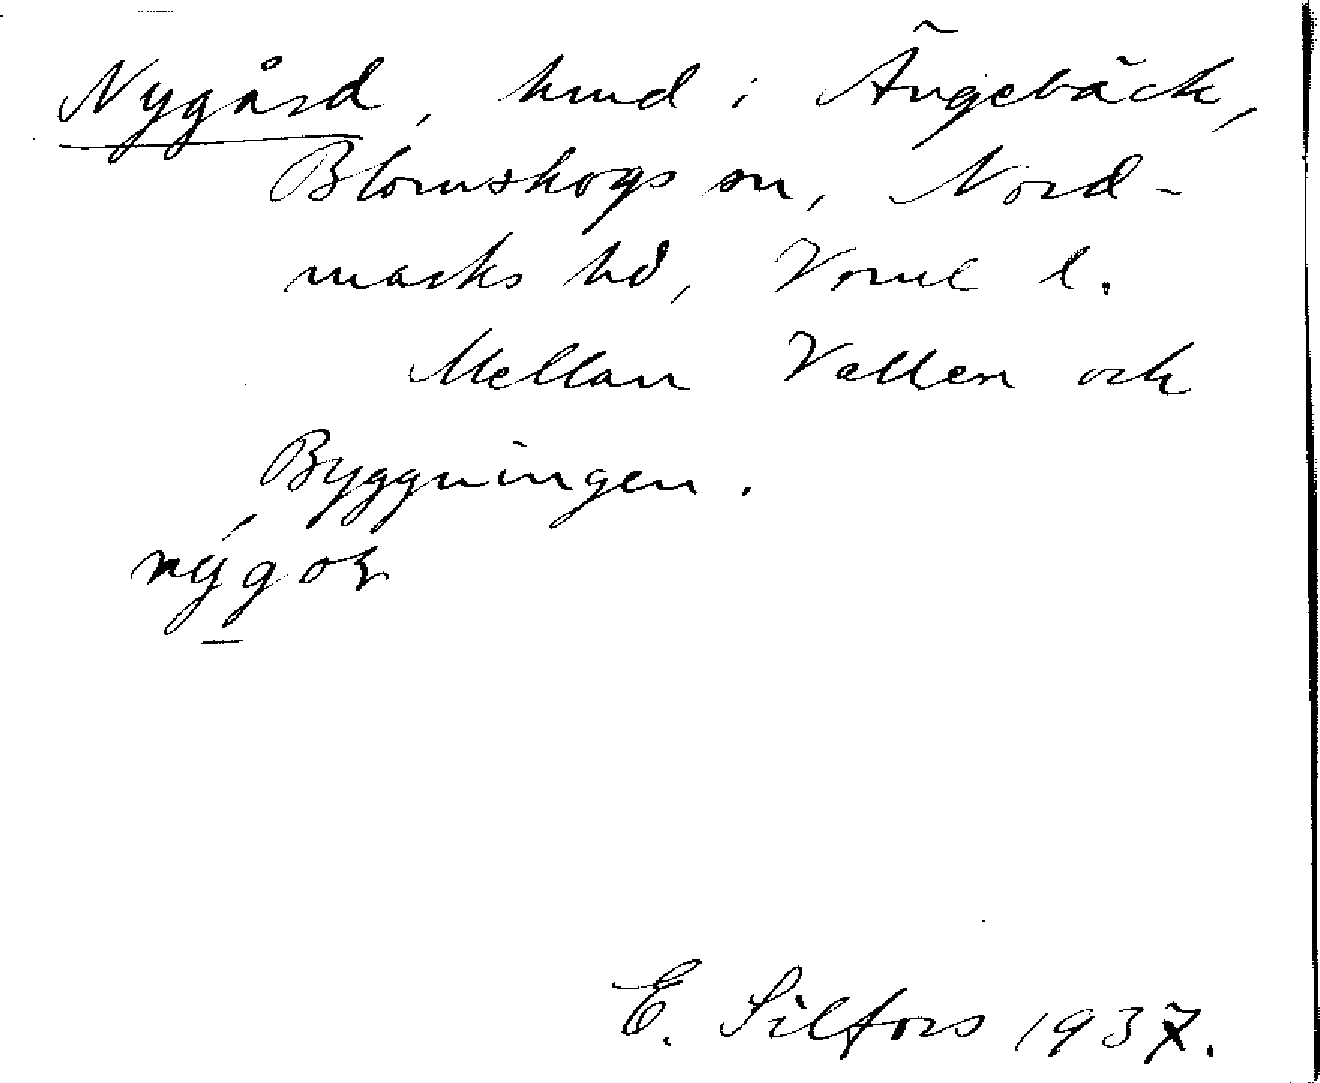 Nygård, hmd i Ängebäck,
Blomskogs sn, Nord-
marks hd, Vrml l.
Mellan Vallen och
Byggningen.
nýgoɽ
E. Silfors 1937.